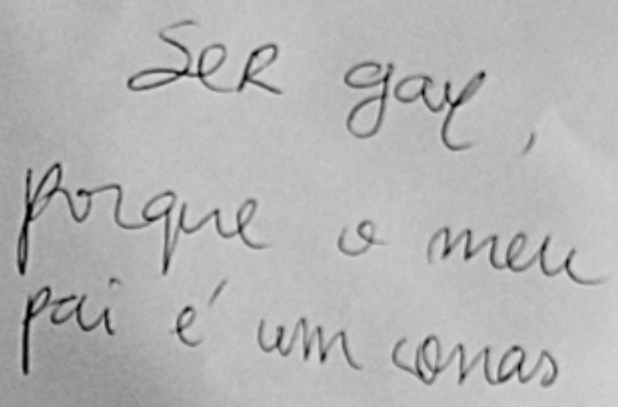 Ser gay,
porque o meu
pai é um conas